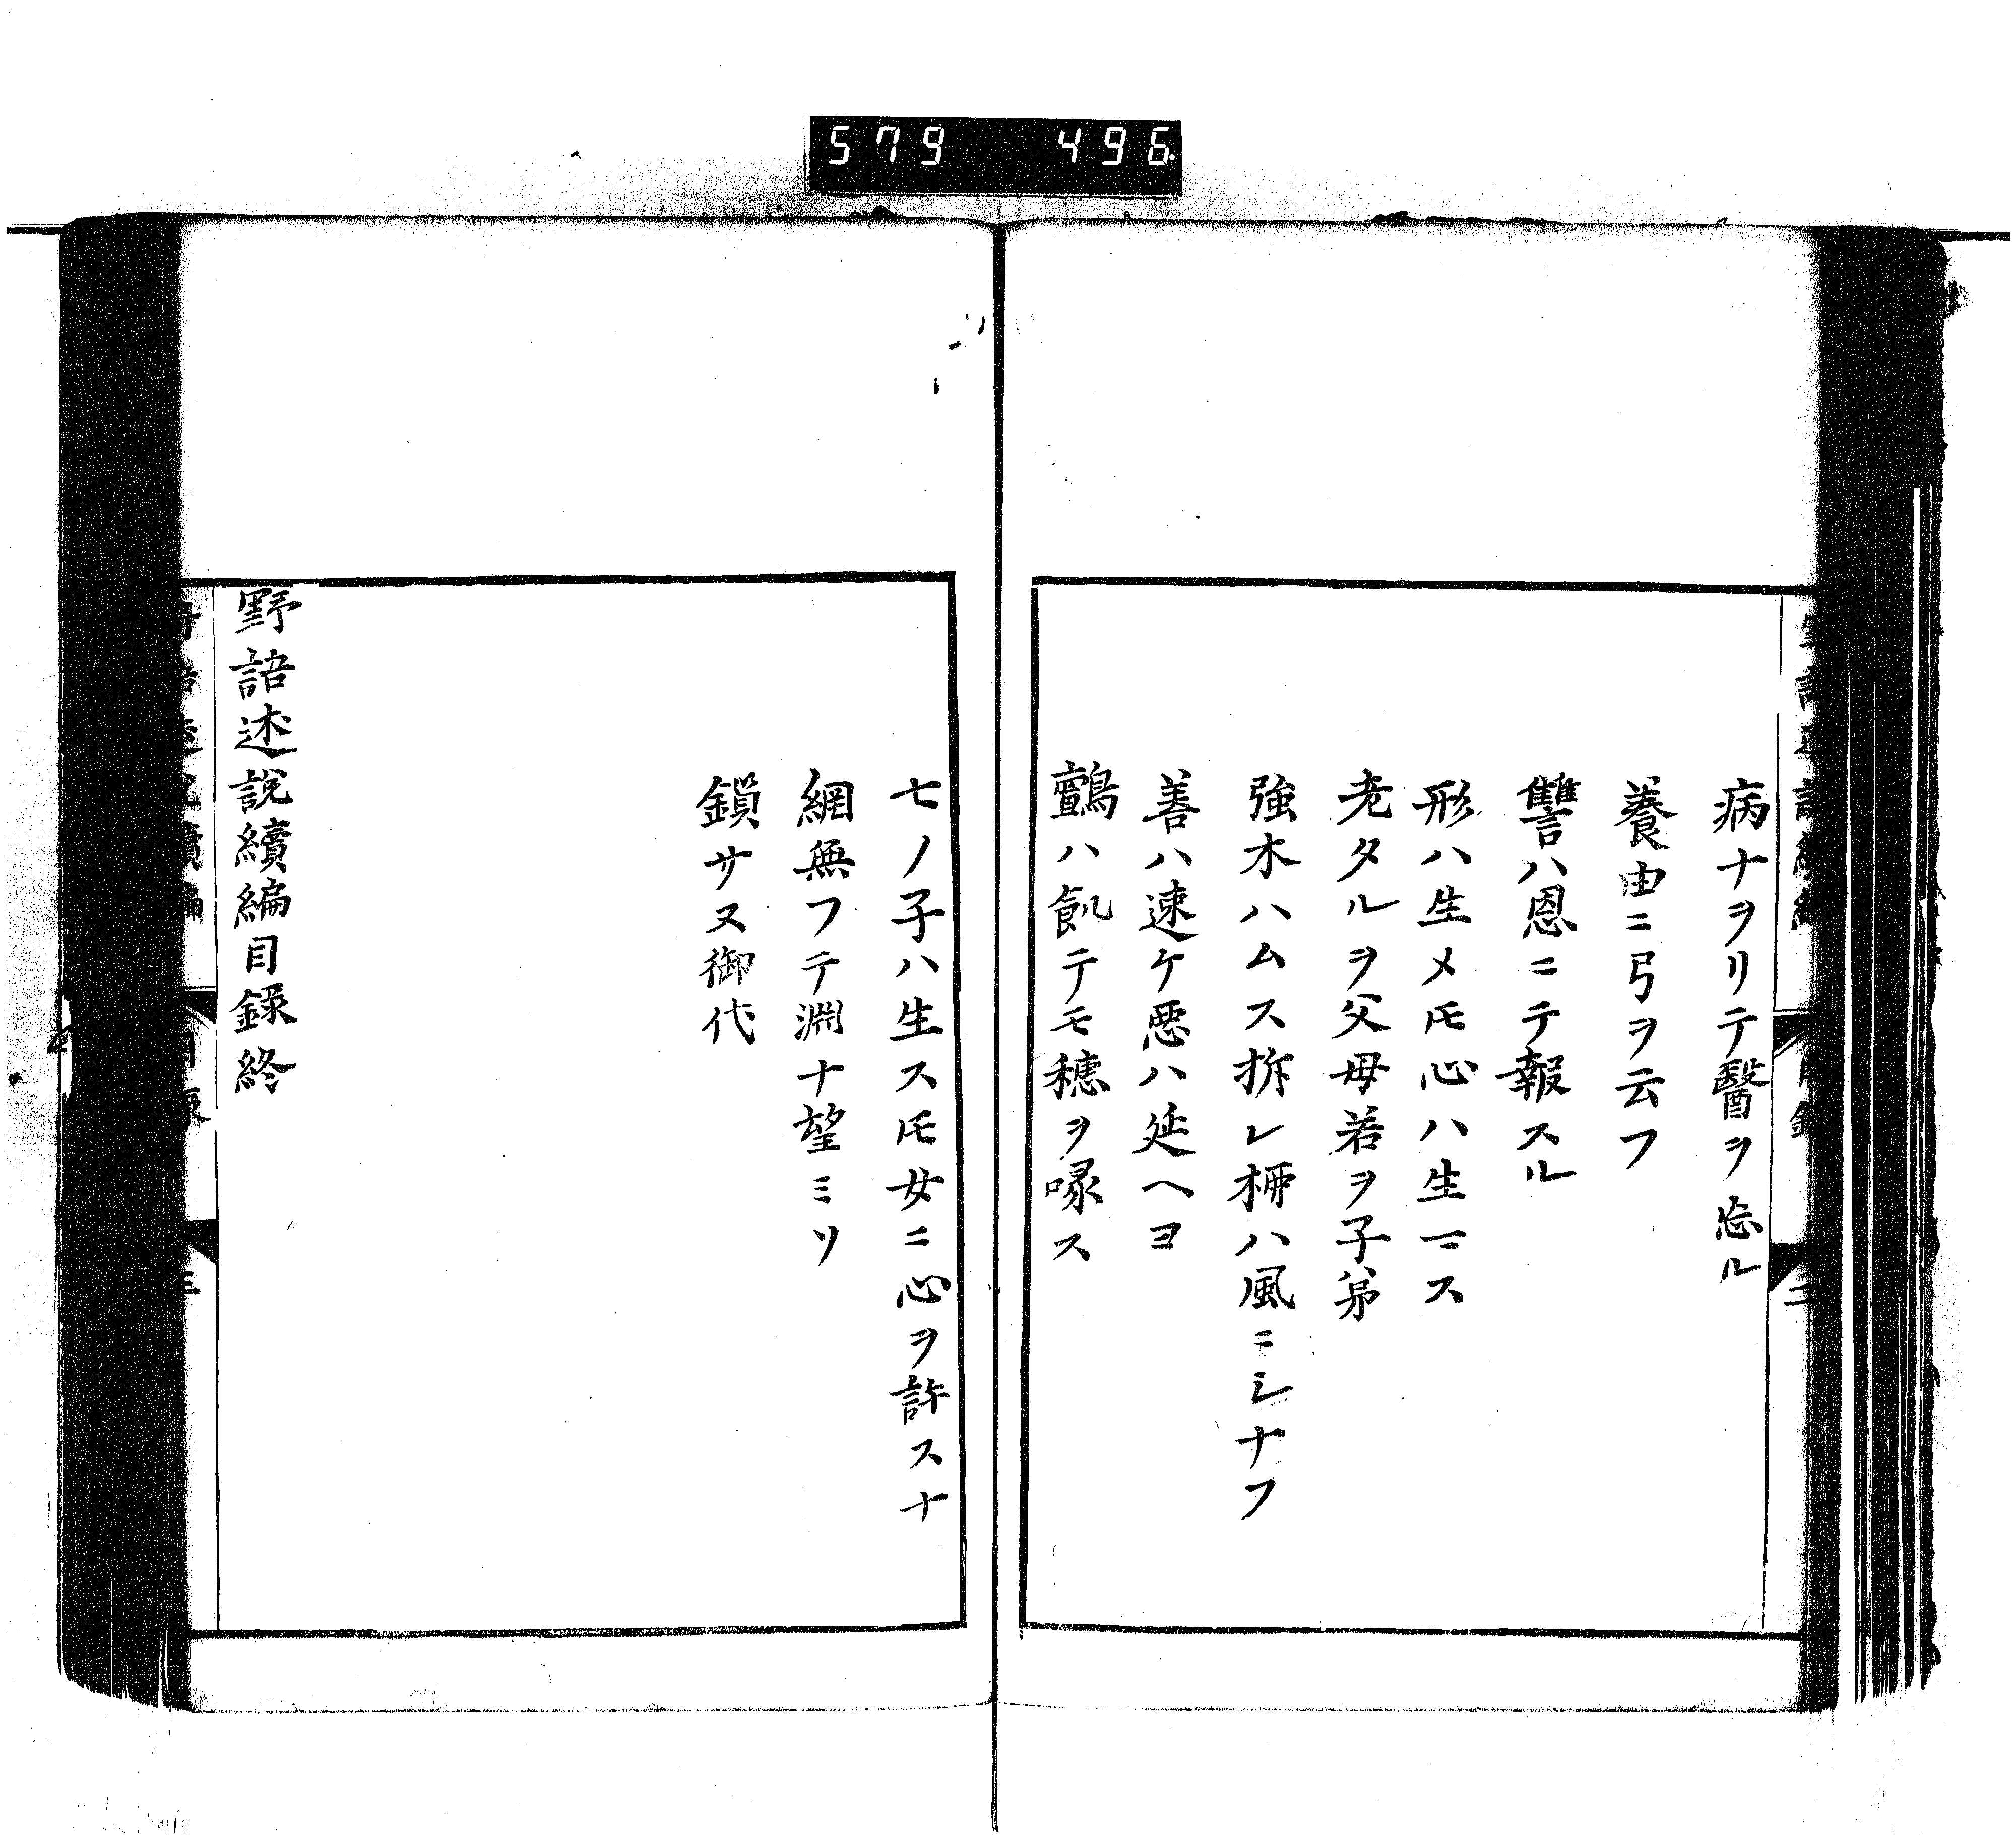 579 496
病ナヲリテ醫ヲ忘ル
養由ニ弓ヲ云フ
讐ハ恩ニテ報スル
形ハ生メ𪜈心ハ生マス
老タルヲ父母若ヲ子弟
強木ハムス折レ栁ハ風ニシナフ
善ハ速ケ悪ハ延ヘヨ
鸇ハ飢テモ穂ヲ啄ス
七ノ子ハ生ス𪜈女ニ心ヲ許スナ
網無フテ淵ナ望ミソ
鎖サヌ御代
野語述說續編目録終